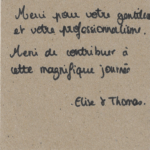 Merci pour votre gentillesse
et votre professionnalisme.
Merci de contribuer à
cette magnifique journée
. Elise & Thomas.